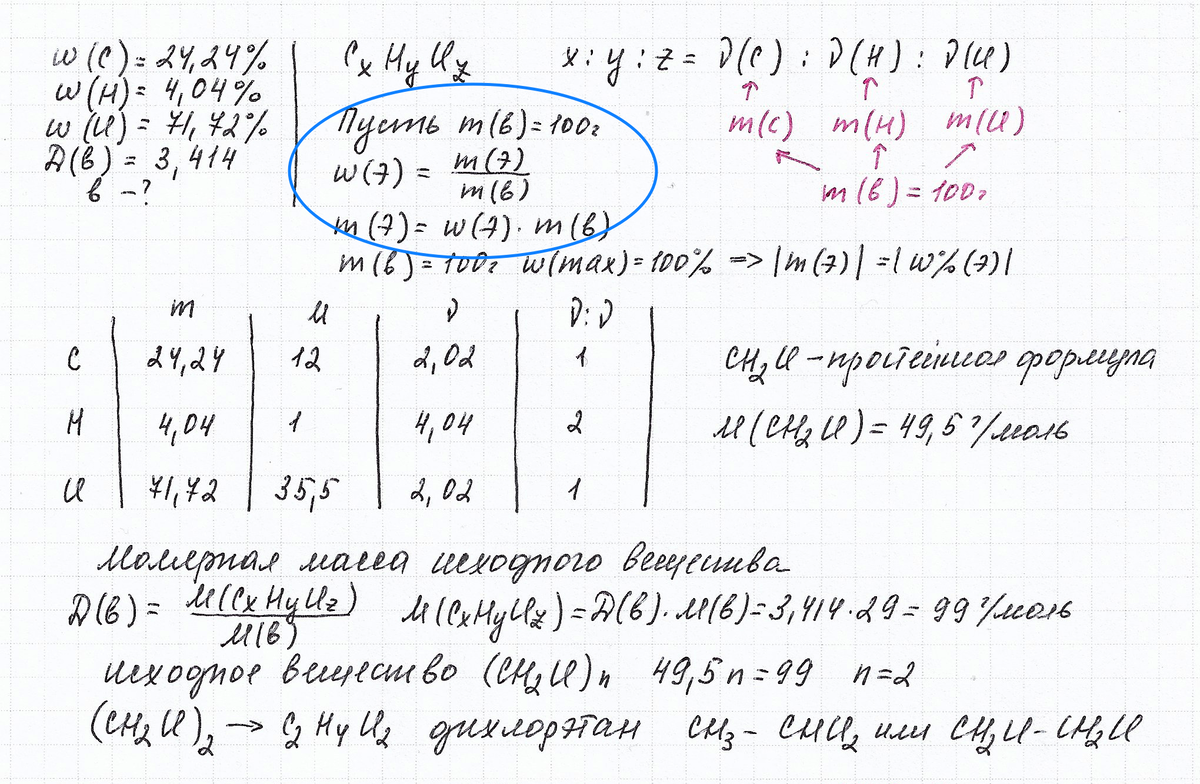 w(C) = 24,24%
w(H) = 4,04%
w(Cl) = 71,72%
D(в) = 3,414
в -?
CxHyClz x : y : z = ν(C) : ν(H) : ν(Cl)
Пусть m(в) = 100г
w(э) = m(э) / m(в)
m(э) = w(э) · m(в)
m(в) = 100г w(max) = 100% => |m(э)| = |w%(э)|
↑ ↑ ↑
m(C) m(H) m(Cl)
m(в) = 100г
m M ν ν:ν
C 24,24 12 2,02 1
H 4,04 1 4,04 2
Cl 71,72 35,5 2,02 1
CH₂Cl - простейшая формула
M(CH₂Cl) = 49,5 г/моль
Молярная масса исходного вещества
D(в) = M(CxHyClz) / M(в) M(CxHyClz) = D(в) · M(в) = 3,414 · 29 = 99 г/моль
исходное вещество (CH₂Cl)n 49,5n = 99 n = 2
(CH₂Cl)₂ → C₂H₄Cl₂ дихлорэтан CH₃ - CHCl₂ или CH₂Cl - CH₂Cl